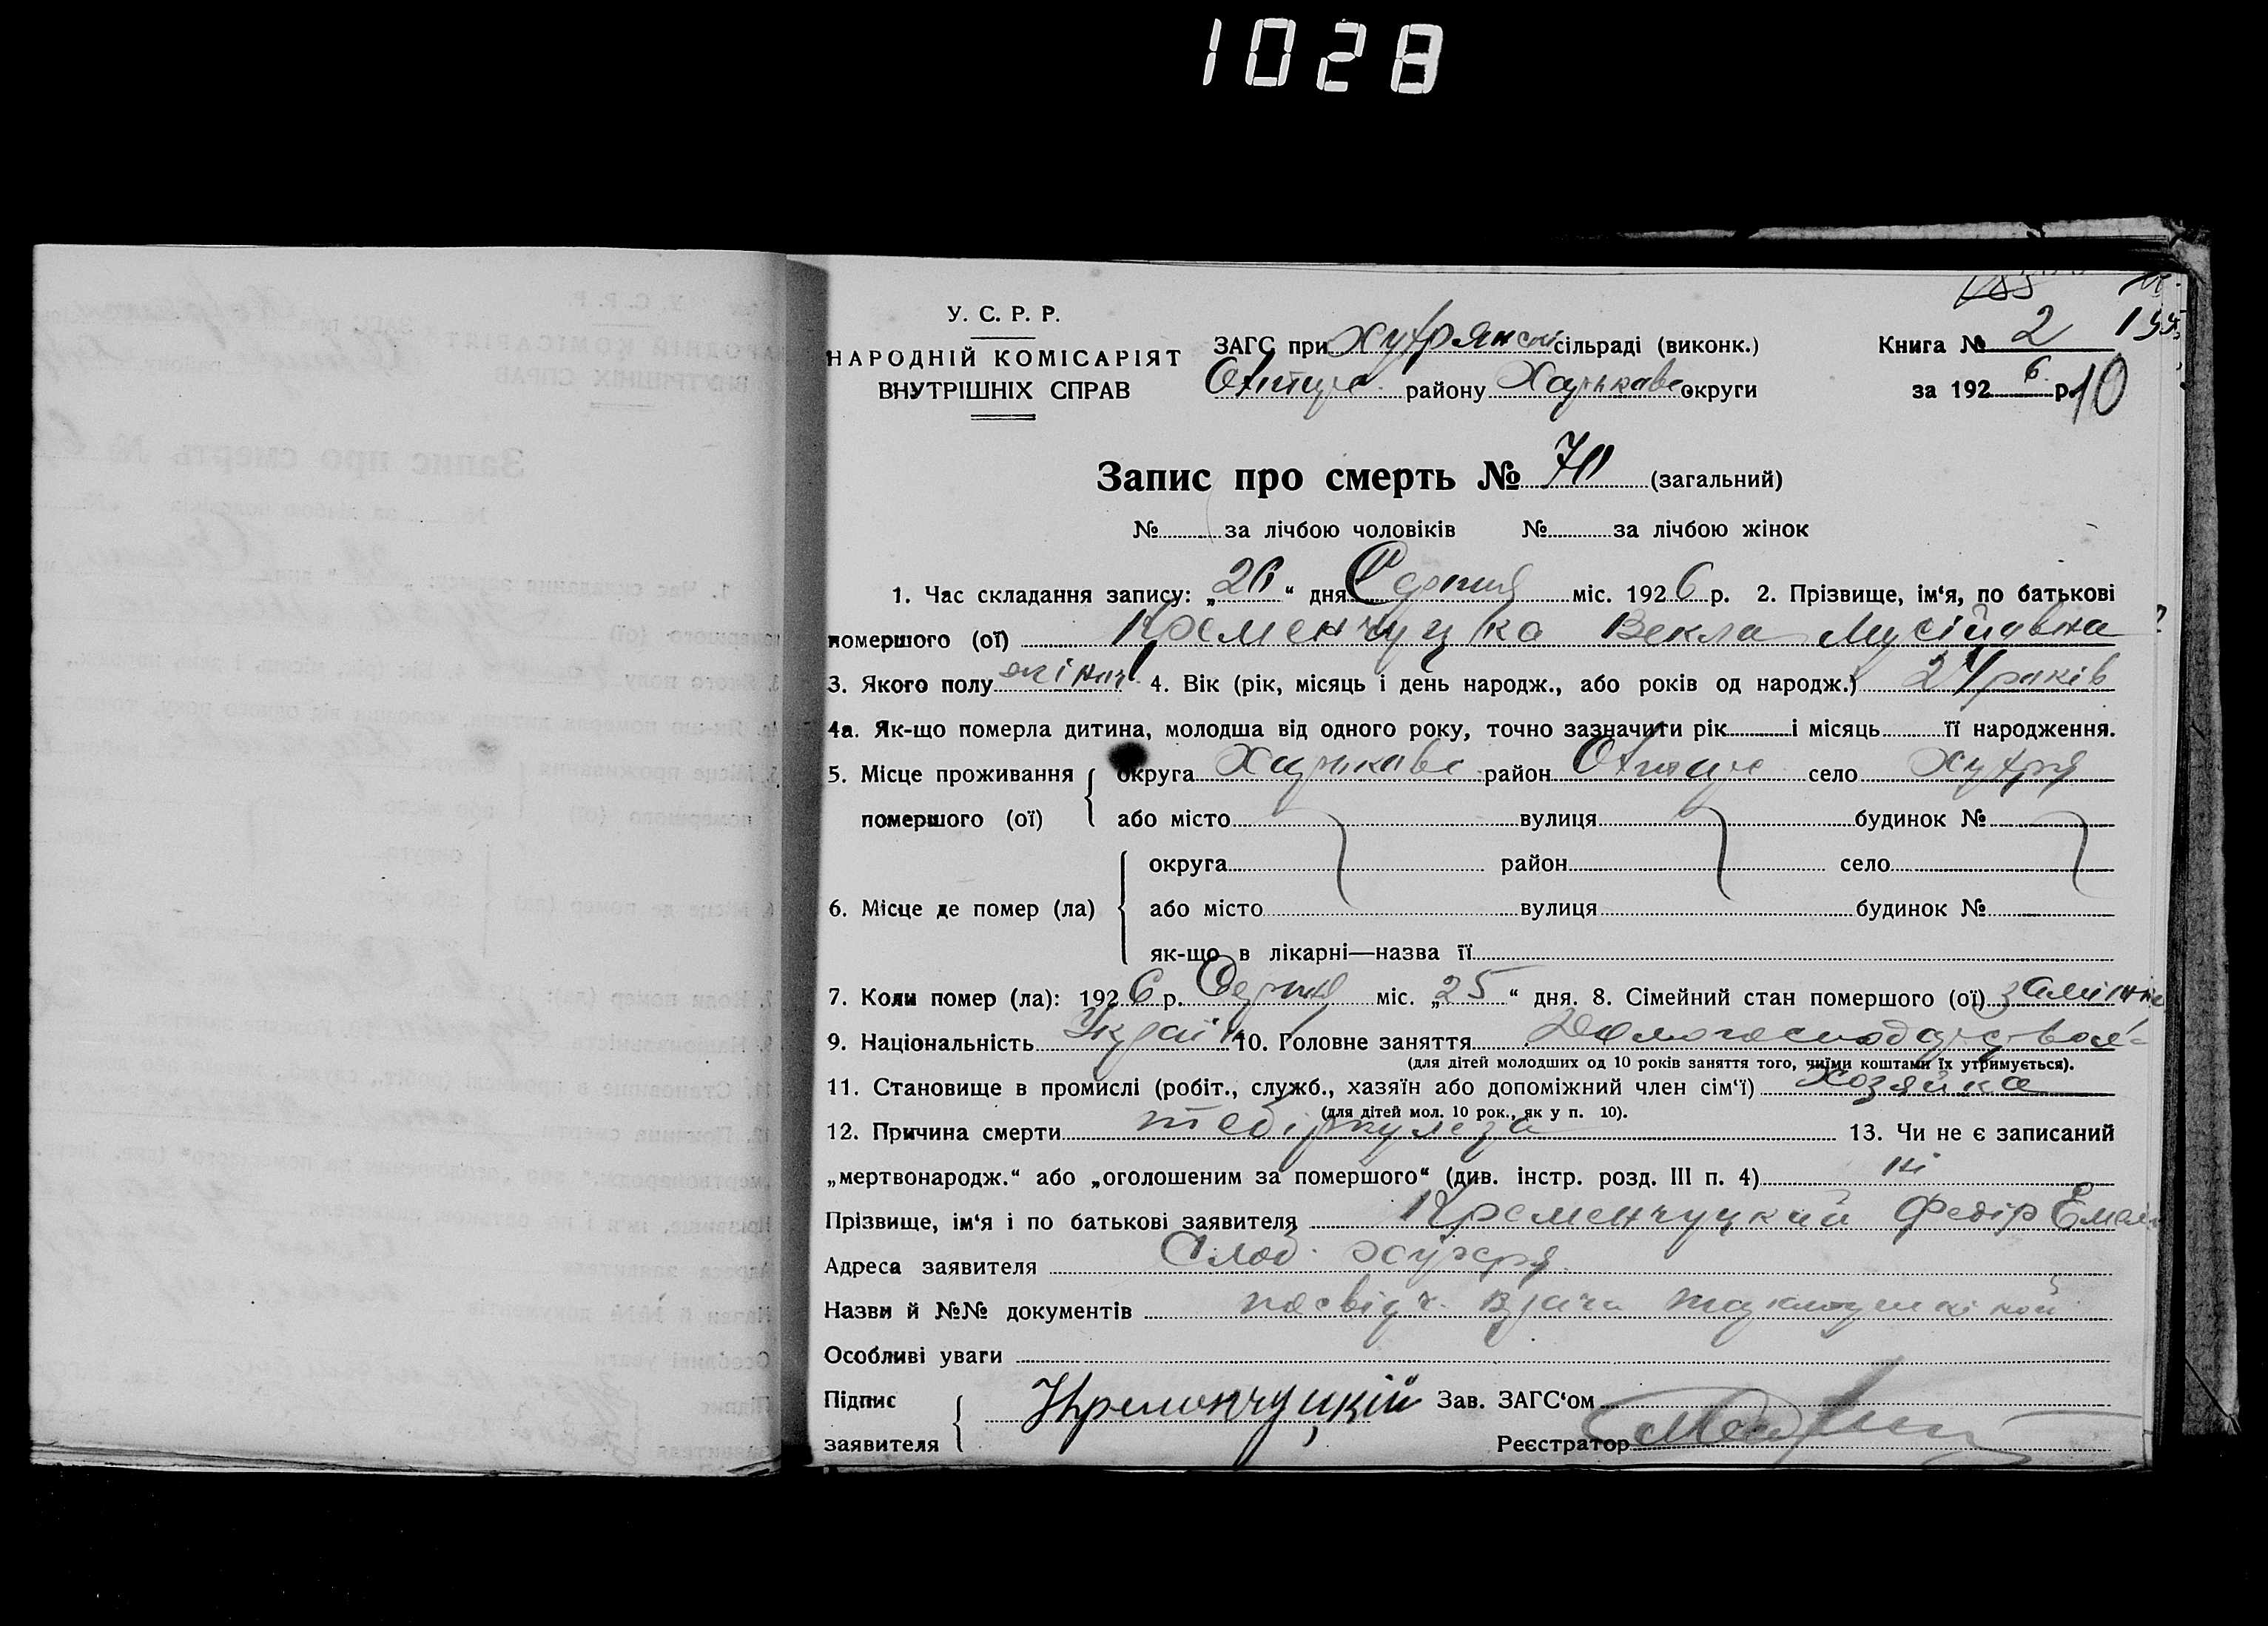 1028
185
У. С. Р. Р.
НАРОДНІЙ КОМІСАРІЯТ
ВНУТРІШНІХ СПРАВ
ЗАГС при сільраді (виконк.)
району Харькавс округи
Книга № 2
за 1926 р. 10
Запис про смерть № 70 (загальний)
№ за лічбою чоловіків № за лічбою жінок
1. Час складання запису: „26“ дня Серпня міс. 1926 р. 2. Прізвище, ім‘я, по батькові
помершого (ої) Кременчуцка Векла Мусійовна
3. Якого полу жіноч 4. Вік (рік, місяць і день народж., або років од народж.) років
4а. Як-що померла дитина, молодша від одного року, точно зазначити рік і місяць її народження.
5. Місце проживання округа Харькавс район село
помершого (ої) або місто вулиця будинок №
округа район село
6. Місце де помер (ла) або місто вулиця будинок №
як-що в лікарні—назва її
7. Коли помер (ла): 1926 р. Серпня міс. „25“ дня. 8. Сімейний стан помершого (ої) заміжня
9. Національність Україн 10. Головне заняття
(для дітей молодших од 10 років заняття того, чиїми коштами їх утримується).
11. Становище в промислі (робіт., служб., хазяїн або допоміжний член сім‘ї) хозяйка
(для дітей мол. 10 рок., як у п. 10).
12. Причина смерти 13. Чи не є записаний
„мертвонародж.“ або „оголошеним за помершого“ (див. інстр. розд. III п. 4) ні
Прізвище, ім‘я і по батькові заявителя Кременчуцкий Федір
Адреса заявителя Слоб.
Назви й №№ документів посвідч. врача
Особливі уваги
Підпис
заявителя Кременчуцкій
Зав. ЗАГС‘ом
Реєстратор